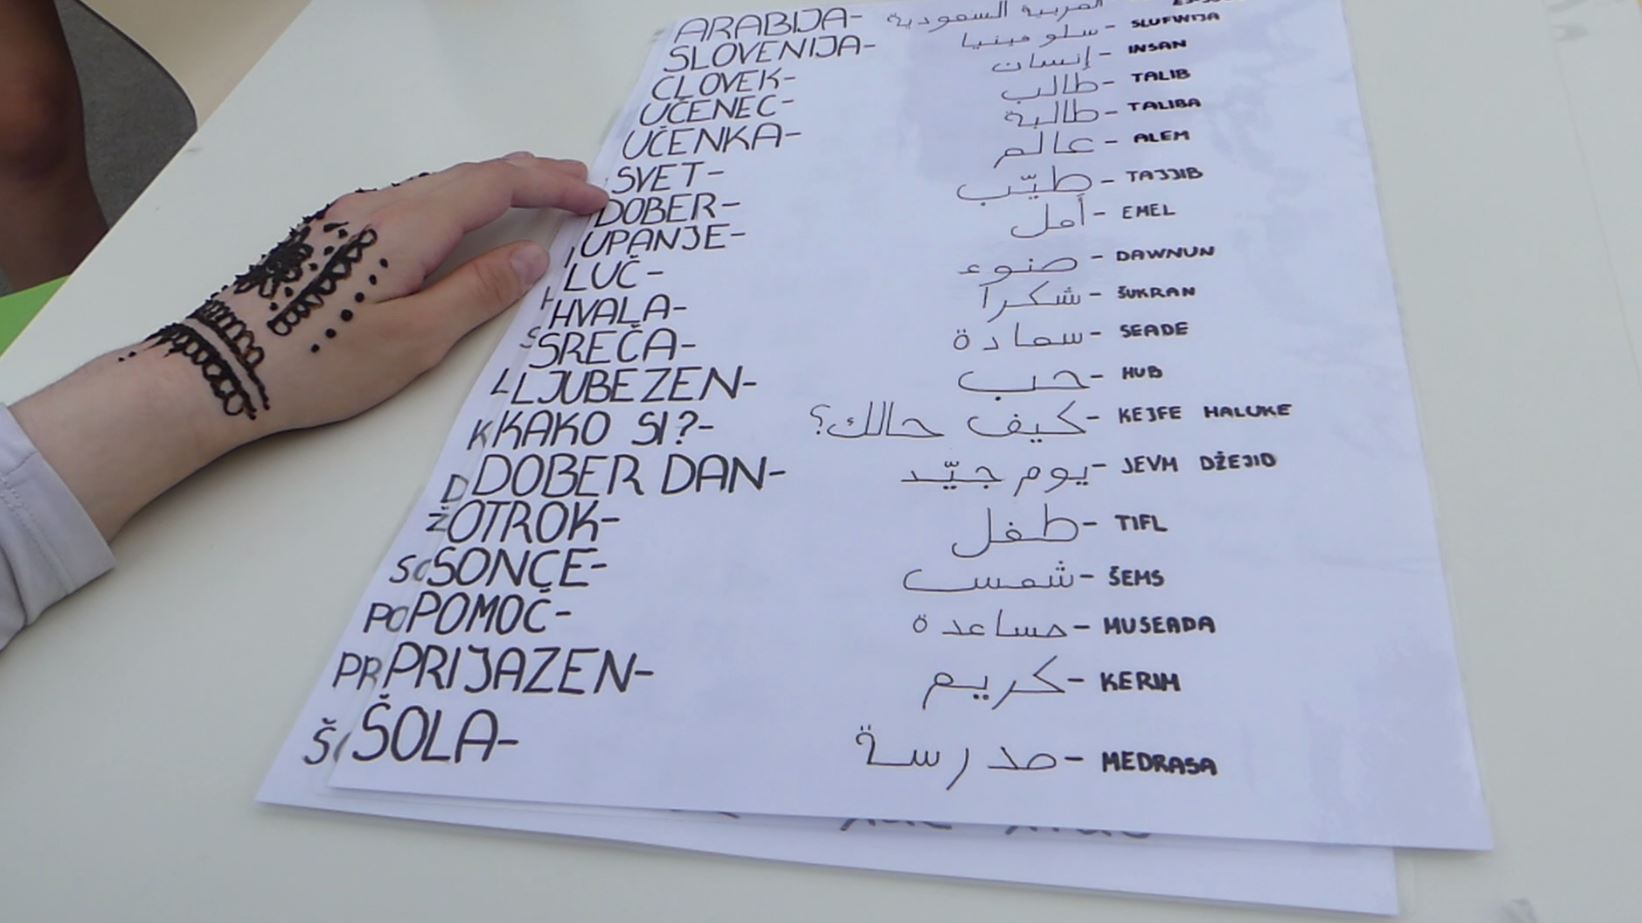 ARABIJA- العربية السعودية
SLOVENIJA- سلوفينيا - SLUFINIJA
ČLOVEK- إنسان - INSAN
UČENEC- طالب - TALIB
UČENKA- طالبة - TALIBA
SVET- عالم - ALEM
DOBER- طيّب - TAJJIB
UPANJE- أمل - EMEL
LUČ- ضنوء - DAWNUN
HVALA- شكراً - ŠUKRAN
SREČA- سعادة - SEADE
LJUBEZEN- حب - HUB
KAKO SI?- كيف حالك؟ - KEJFE HALUKE
DOBER DAN- يوم جيّد - JEVM DŽEJID
OTROK- طفل - TIFL
SONCE- شمس - ŠEMS
POMOČ- مساعدة - MUSEADA
PRIJAZEN- كريم - KERIM
ŠOLA- مدرسة - MEDRASA